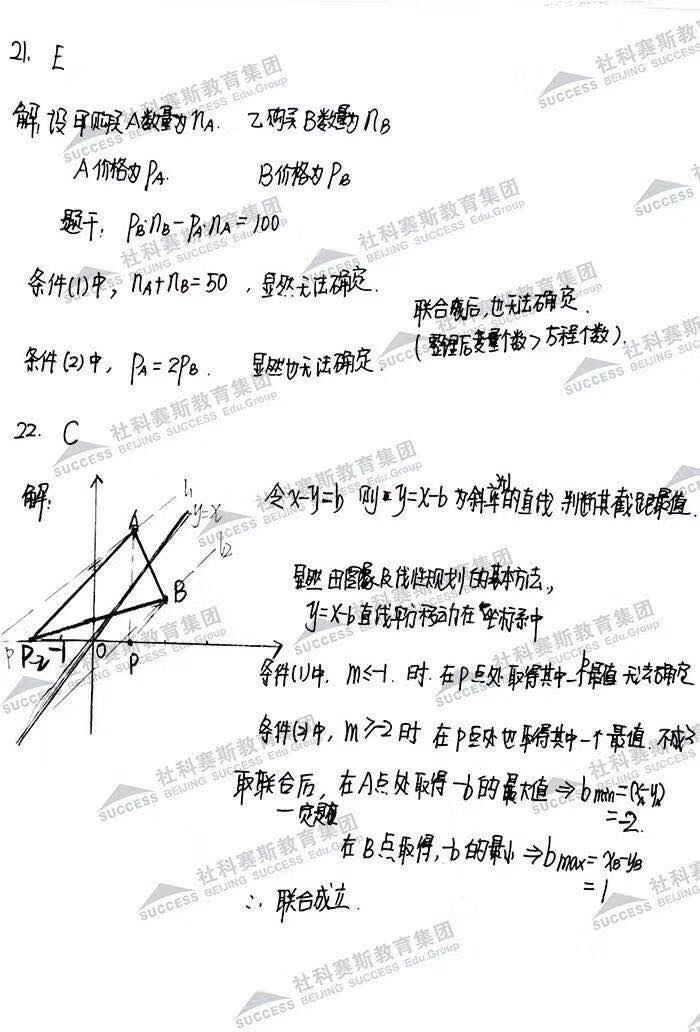 21. E
解:设甲购买A数量为nA. 乙购买B数量为nB
A价格为PA. B价格为PB
题干: PB·nB-PA·nA=100
条件(1)中, nA+nB=50, 显然无法确定.
联合后, 也无法确定.
(整理后变量个数>方程个数).
条件(2)中, PA=2PB. 显然也无法确定.
22. C
解:
令x-y=b 则y=x-b为斜率的直线, 判断其截距最值.
l1
y=x
l2
A
B
P -2 -1 0 P
显然由图象及线性规划的基本方法,
y=x-b直线平行移动在坐标系中
条件(1)中, m≤-1. 时. 在P点处取得其中一个最值 无法确定
条件(2)中, m≥-2时 在P点处也取得其中一个最值. 不成立
取联合后, 在A点处取得-b的最大值⇒bmin=(xA-yA)
一定是 =-2.
在B点取得, -b的最小⇒bmax=xB-yB
=1
∴ 联合成立.
社科赛斯教育集团
SUCCESS BEIJING SUCCESS Edu.Group